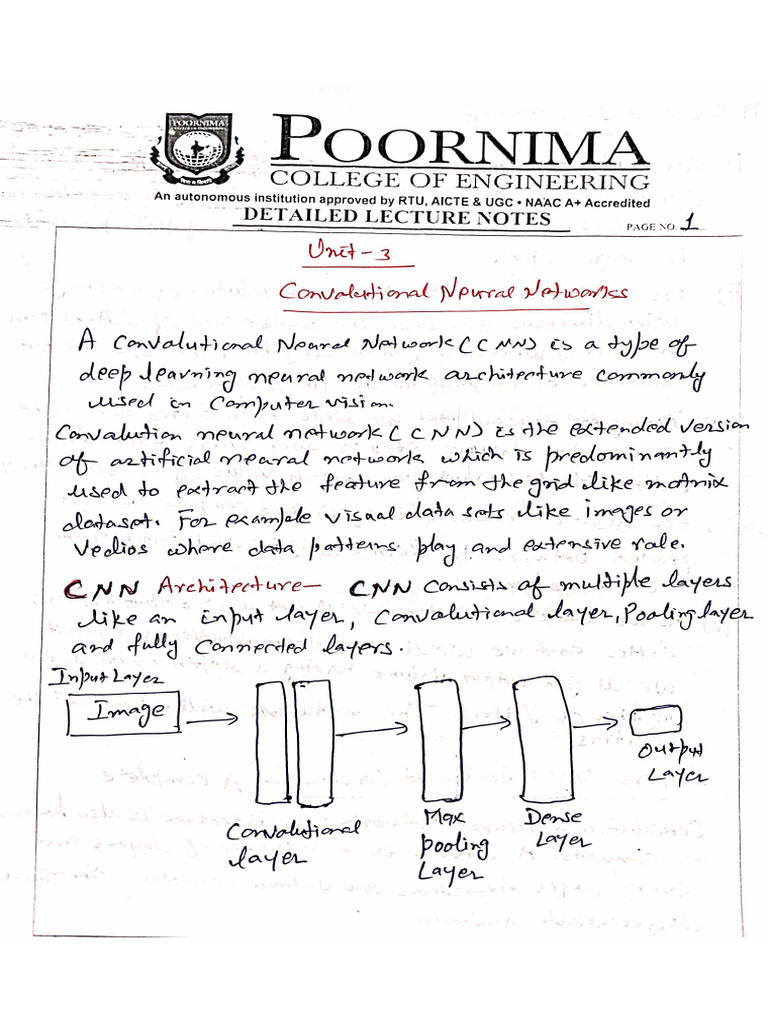 POORNIMA
COLLEGE OF ENGINEERING
POORNIMA
COLLEGE OF ENGINEERING
An autonomous institution approved by RTU, AICTE & UGC • NAAC A+ Accredited
DETAILED LECTURE NOTES
PAGE NO. 1
Unit-3
Convalutional Neural Networks
A Convalutional Neural Network (CNN) is a type of
deep learning neural network architecture commonly
used in Computer vision.
Convalution neural network (CNN) is the extended version
of artificial neural network which is predominantly
used to extract the feature from the grid like matrix
dataset. For example visual data sets like images or
Vedios where data patterns play and extensive role.
CNN Architecture- CNN consists of multiple layers
like an input layer, Convalutional layer, Pooling layer
and fully Connected layers.
Input Layer
Image
Output
Layer
Convalutional
layer
Max
pooling
Layer
Dense
Layer